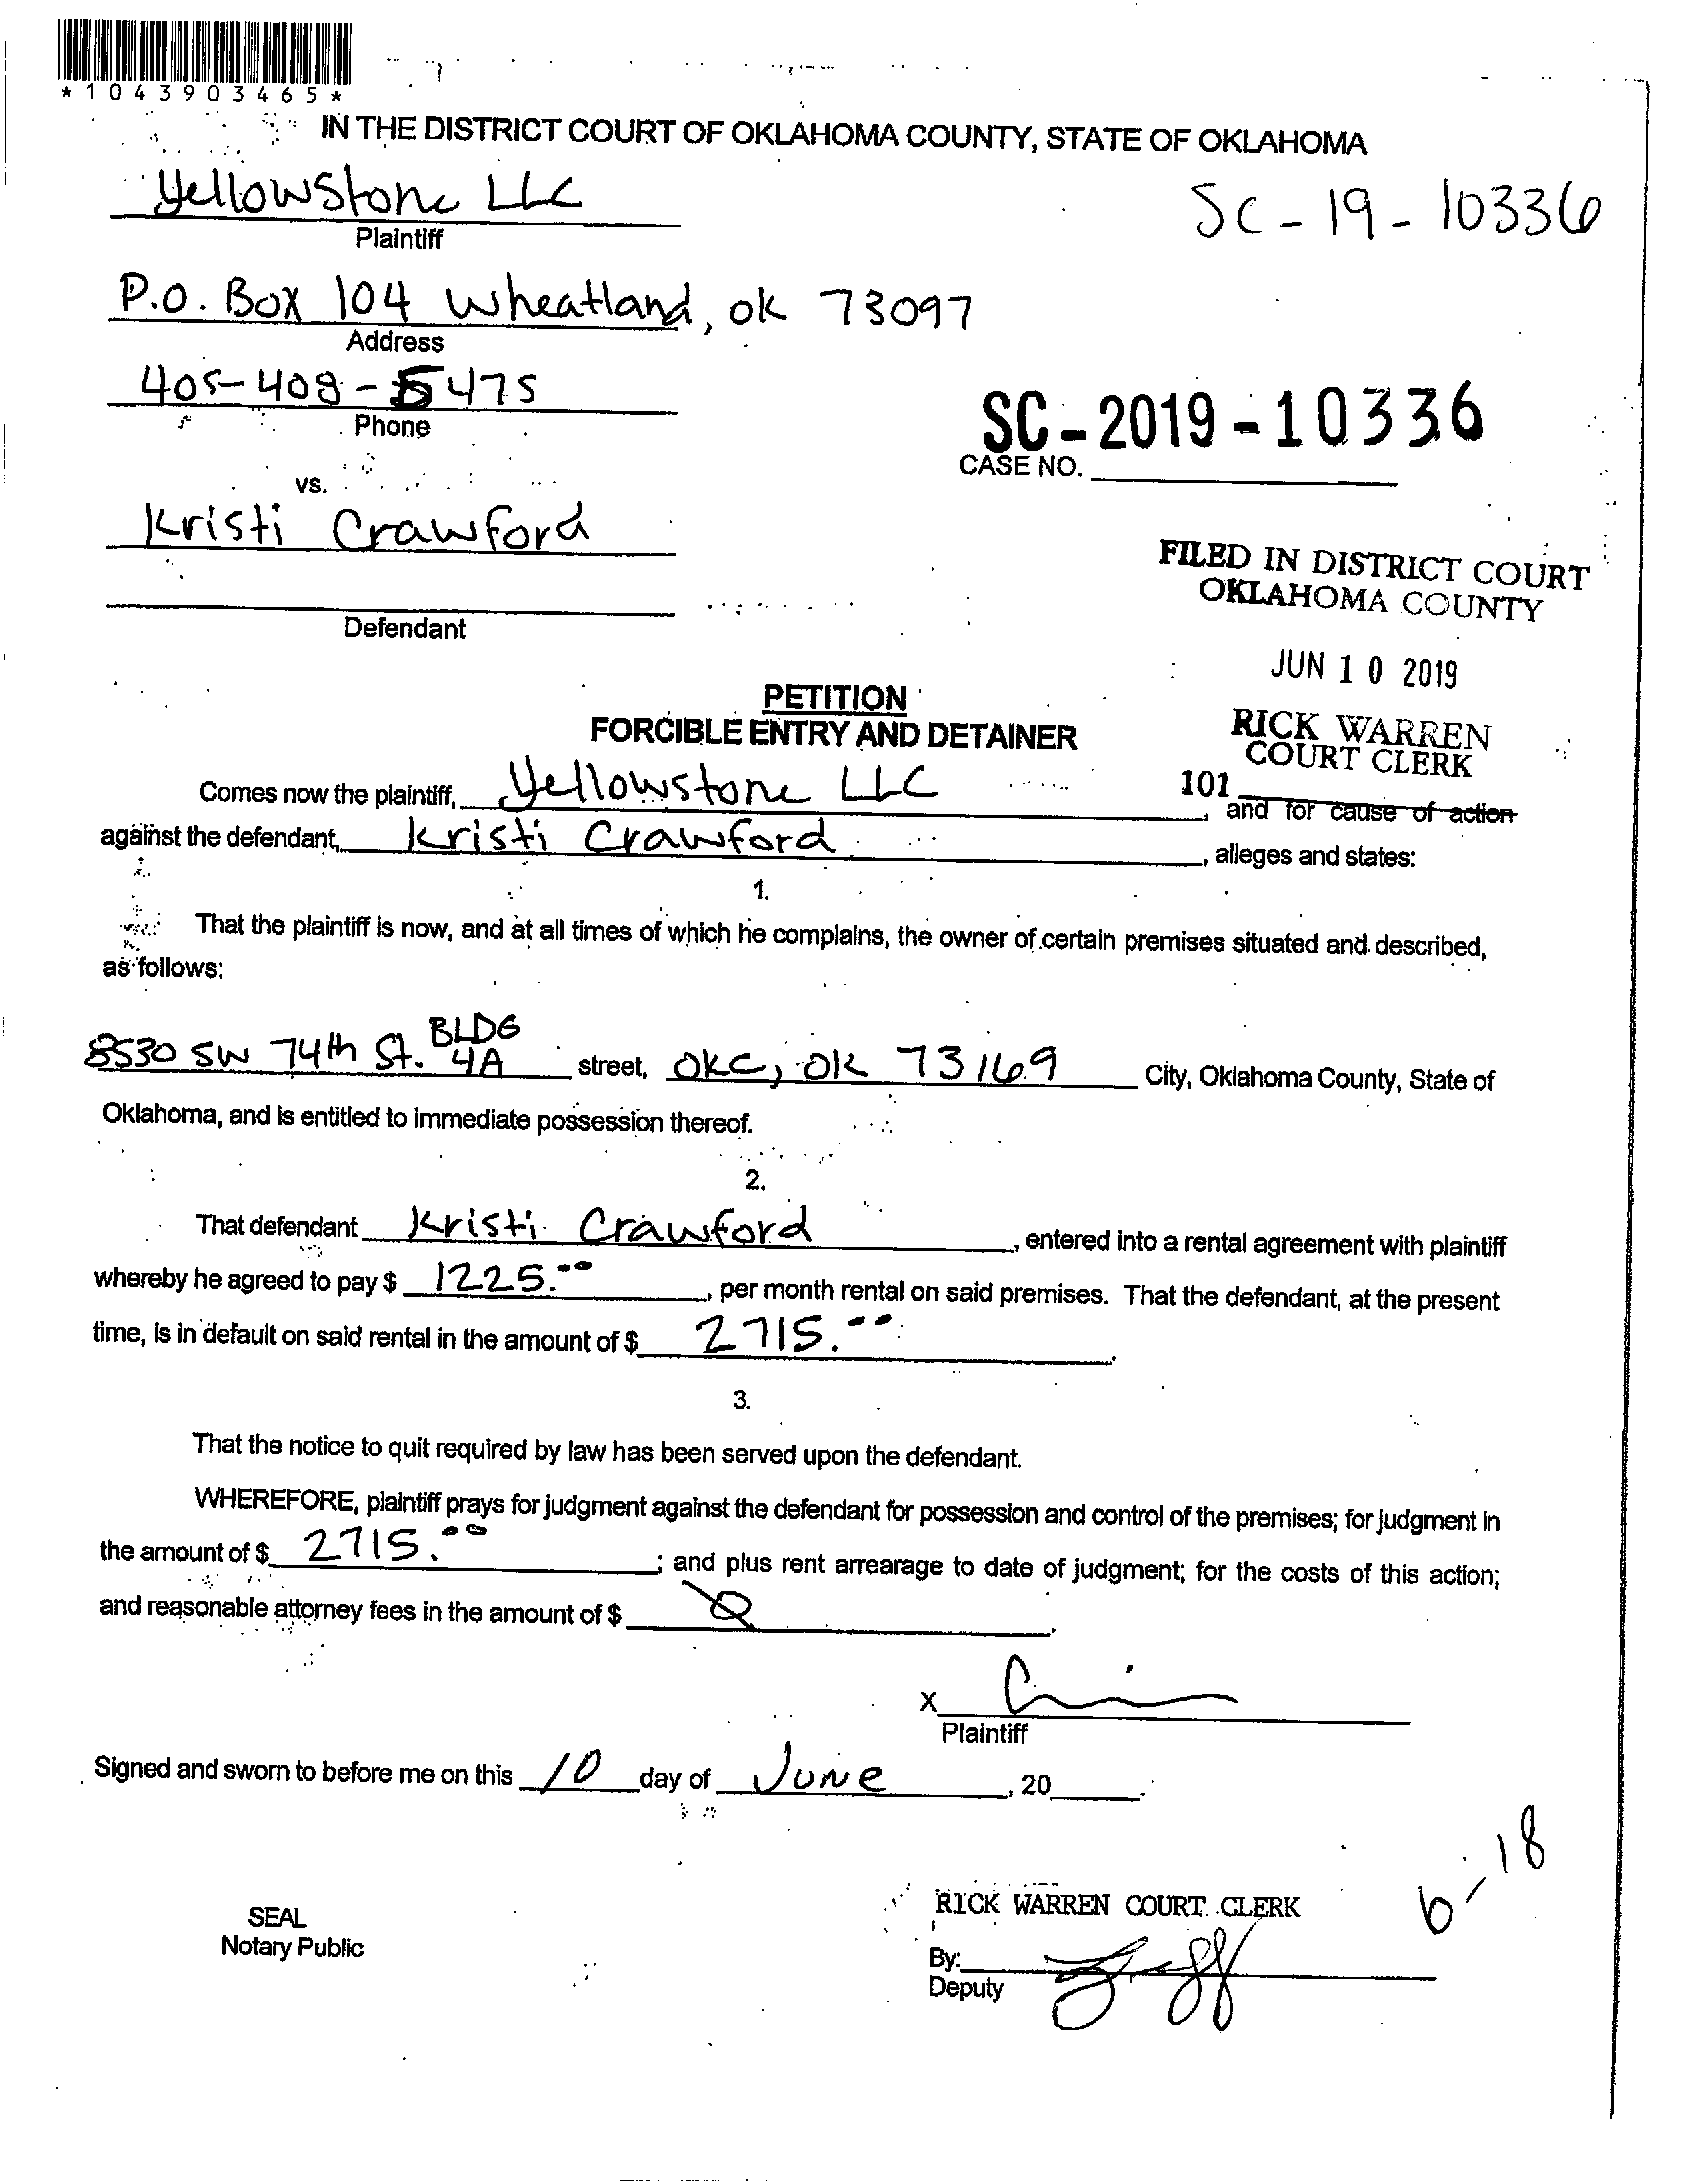 *1043903465*
IN THE DISTRICT COURT OF OKLAHOMA COUNTY, STATE OF OKLAHOMA
Yellowstone LLC
Plaintiff
SC-19-10336
P.O. Box 104 Wheatland, ok 73097
Address
405-408-5475
Phone
SC-2019-10336
CASE NO.
vs.
Kristi Crawford
Defendant
FILED IN DISTRICT COURT
OKLAHOMA COUNTY
JUN 10 2019
RICK WARREN
COURT CLERK
101
PETITION
FORCIBLE ENTRY AND DETAINER
Comes now the plaintiff, Yellowstone LLC, and for cause of action
against the defendant, Kristi Crawford, alleges and states:
1.
That the plaintiff is now, and at all times of which he complains, the owner of certain premises situated and described,
as follows:
8530 SW 74th St. BLDG 4A street, OKC, OK 73169 City, Oklahoma County, State of
Oklahoma, and is entitled to immediate possession thereof.
2.
That defendant Kristi Crawford, entered into a rental agreement with plaintiff
whereby he agreed to pay $ 1225.00, per month rental on said premises. That the defendant, at the present
time, is in default on said rental in the amount of $ 2715.00.
3.
That the notice to quit required by law has been served upon the defendant.
WHEREFORE, plaintiff prays for judgment against the defendant for possession and control of the premises; for judgment in
the amount of $ 2715.00; and plus rent arrearage to date of judgment; for the costs of this action;
and reasonable attorney fees in the amount of $ 0.
X
Plaintiff
Signed and sworn to before me on this 10 day of June, 20.
6-18
SEAL
Notary Public
RICK WARREN COURT CLERK
By:
Deputy